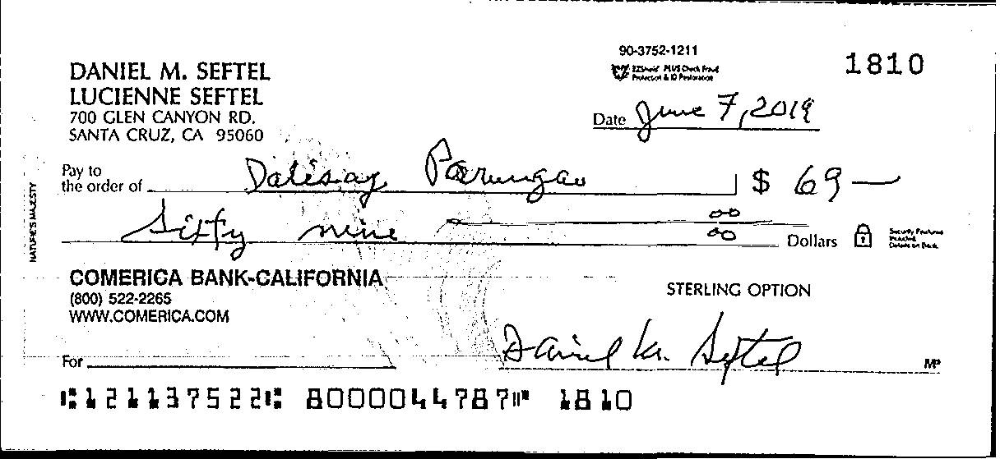 90-3752-1211
1810
DANIEL M. SEFTEL
LUCIENNE SEFTEL
700 GLEN CANYON RD.
SANTA CRUZ, CA 95060
EZShield PLUS Check Fraud
Protection & ID Restoration
Date June 7, 2019
Pay to
the order of Dalisay Parungao $ 69 —
Sixty nine 00/00 Dollars
Security Features
Included
Details on Back.
NATURE'S MAJESTY
COMERICA BANK-CALIFORNIA
(800) 522-2265
WWW.COMERICA.COM
STERLING OPTION
For Daniel M. Seftel MP
⑆121137522⑆ 8000044787⑈ 1810